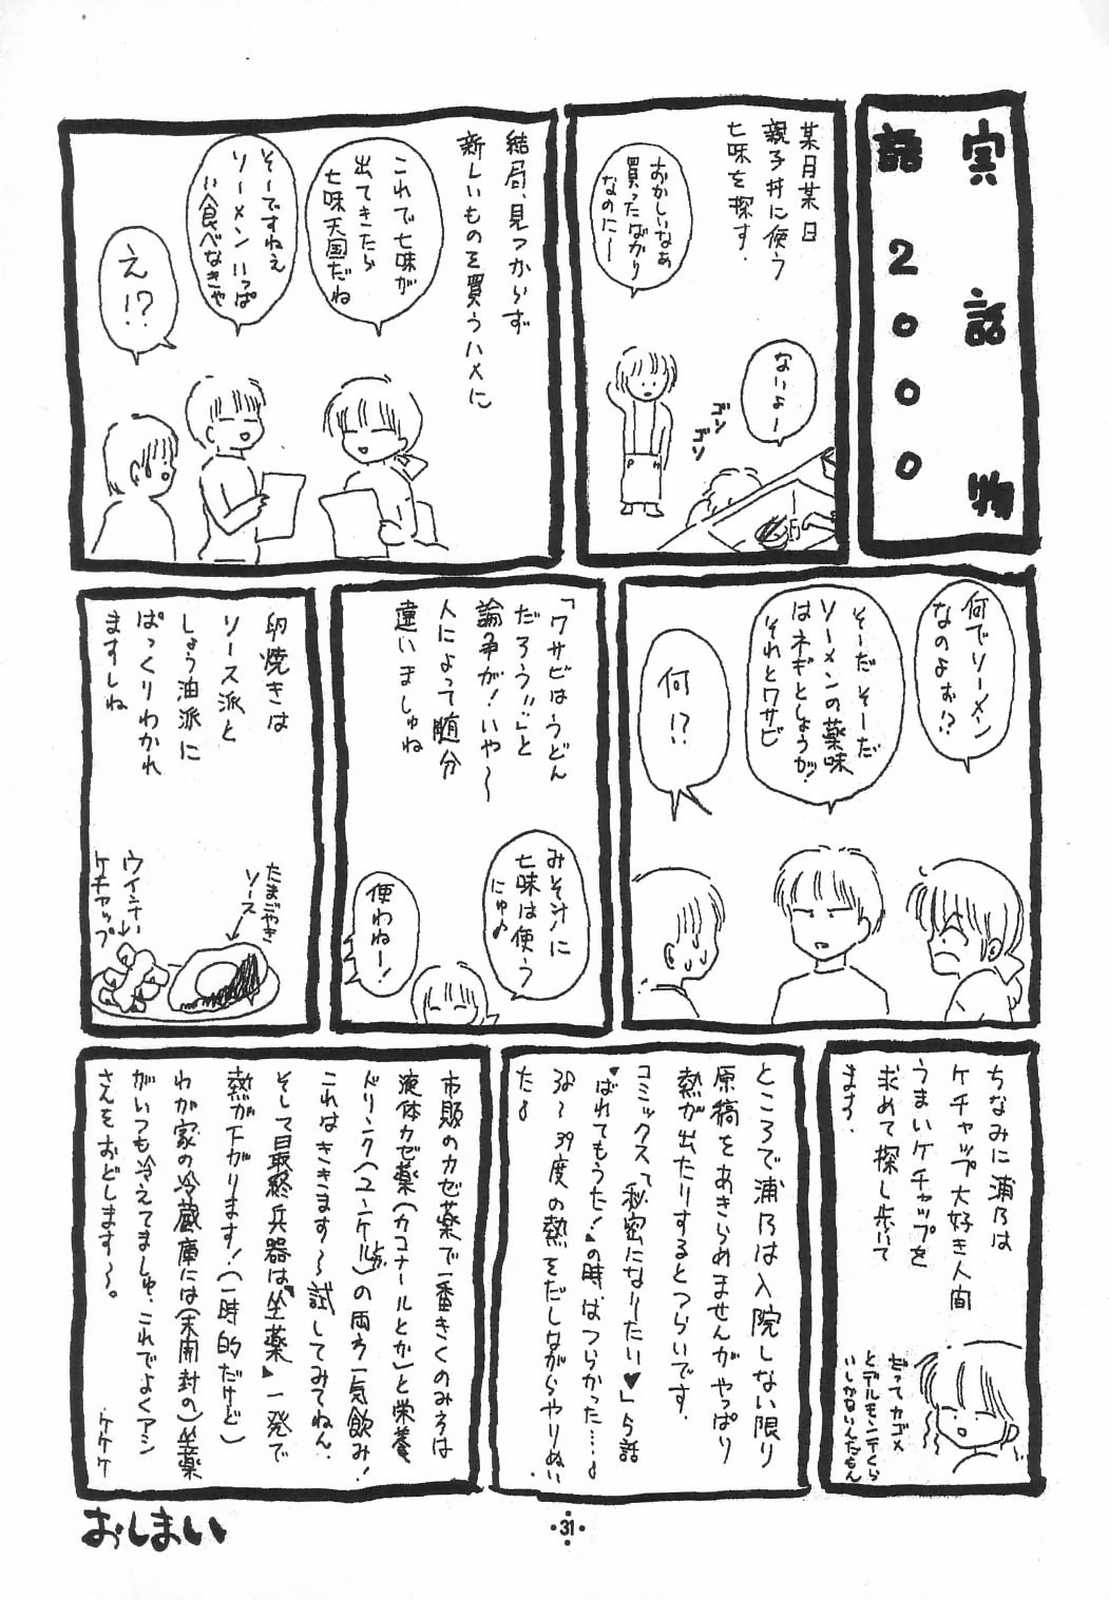 実話物
語2000
某月某日
親子丼に使う
七味を探す.
おかしいなぁ
買ったばかり
なのにー
ないよー
ゴン
ゴソ
結局、見つからず
新しいものを買うハメに
これで七味が
出てきたら
七味天国だね
そーですねえ
ソーメンいっぱ
い食べなきゃ
え!?
何でソーメン
なのよぉ!?
そーだそーだ
ソーメンの薬味
はネギとしょうが!
それとワサビ
何!?
「ワサビはうどん
だろう!!」と
論争が!いや〜
人によって随分
違いましゅね
みそ汁に
七味は使う
にゅ♪
使わねー!
卵焼きは
ソース派と
しょう油派に
ぱっくりわかれ
ますしね
たまごやき
ソース
ウインナー
ケチャップ
ちなみに浦乃は
ケチャップ大好き人間
うまいケチャップを
求めて探し歩いて
ます.
だってカゴメ
とデルモンテくら
いしかないんだもん
ところで浦乃は入院しない限り
原稿をあきらめませんがやっぱり
熱が出たりするとつらいです.
コミックス「秘密になりたい♥」ら話
♥ばれてもうた!♥の時はつらかった……♪
38〜39度の熱をだしながらやりぬい
た♪
市販のカゼ薬で一番きくのみ方は
液体カゼ薬(カコナールとか)と栄養
ドリンク(ユンケルとか)の両方一気飲み!
これはききます〜試してみてねん.
そして最終兵器は♥坐薬♥一発で
熱が下がります!(一時的だけど)
わが家の冷蔵庫には(未開封の)坐薬
がいつも冷えてましゅ.これでよくアシ
さんをおどします〜。 ケケケ
おしまい
31